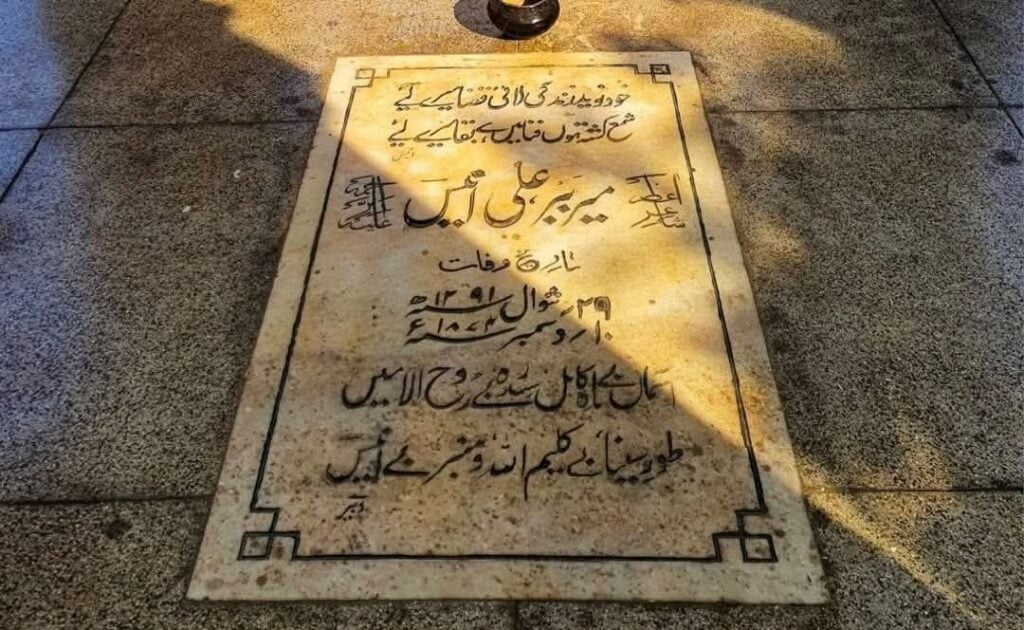 خود نوید زندگی لائی قضا میرے لیے
شمع کشتہ ہوں فنا میں ہے بقا میرے لیے
انیس
شاعر اعظم میر ببر علی انیس
تاریخ وفات
۲۹ر شوال ۱۲۹۱ھ
۱۰ر دسمبر ۱۸۷۴ء
آسماں بے ماہ کامل سدرہ بے روح الامیں
طور سینا بے کلیم اللہ و منبر بے انیس
دبیر